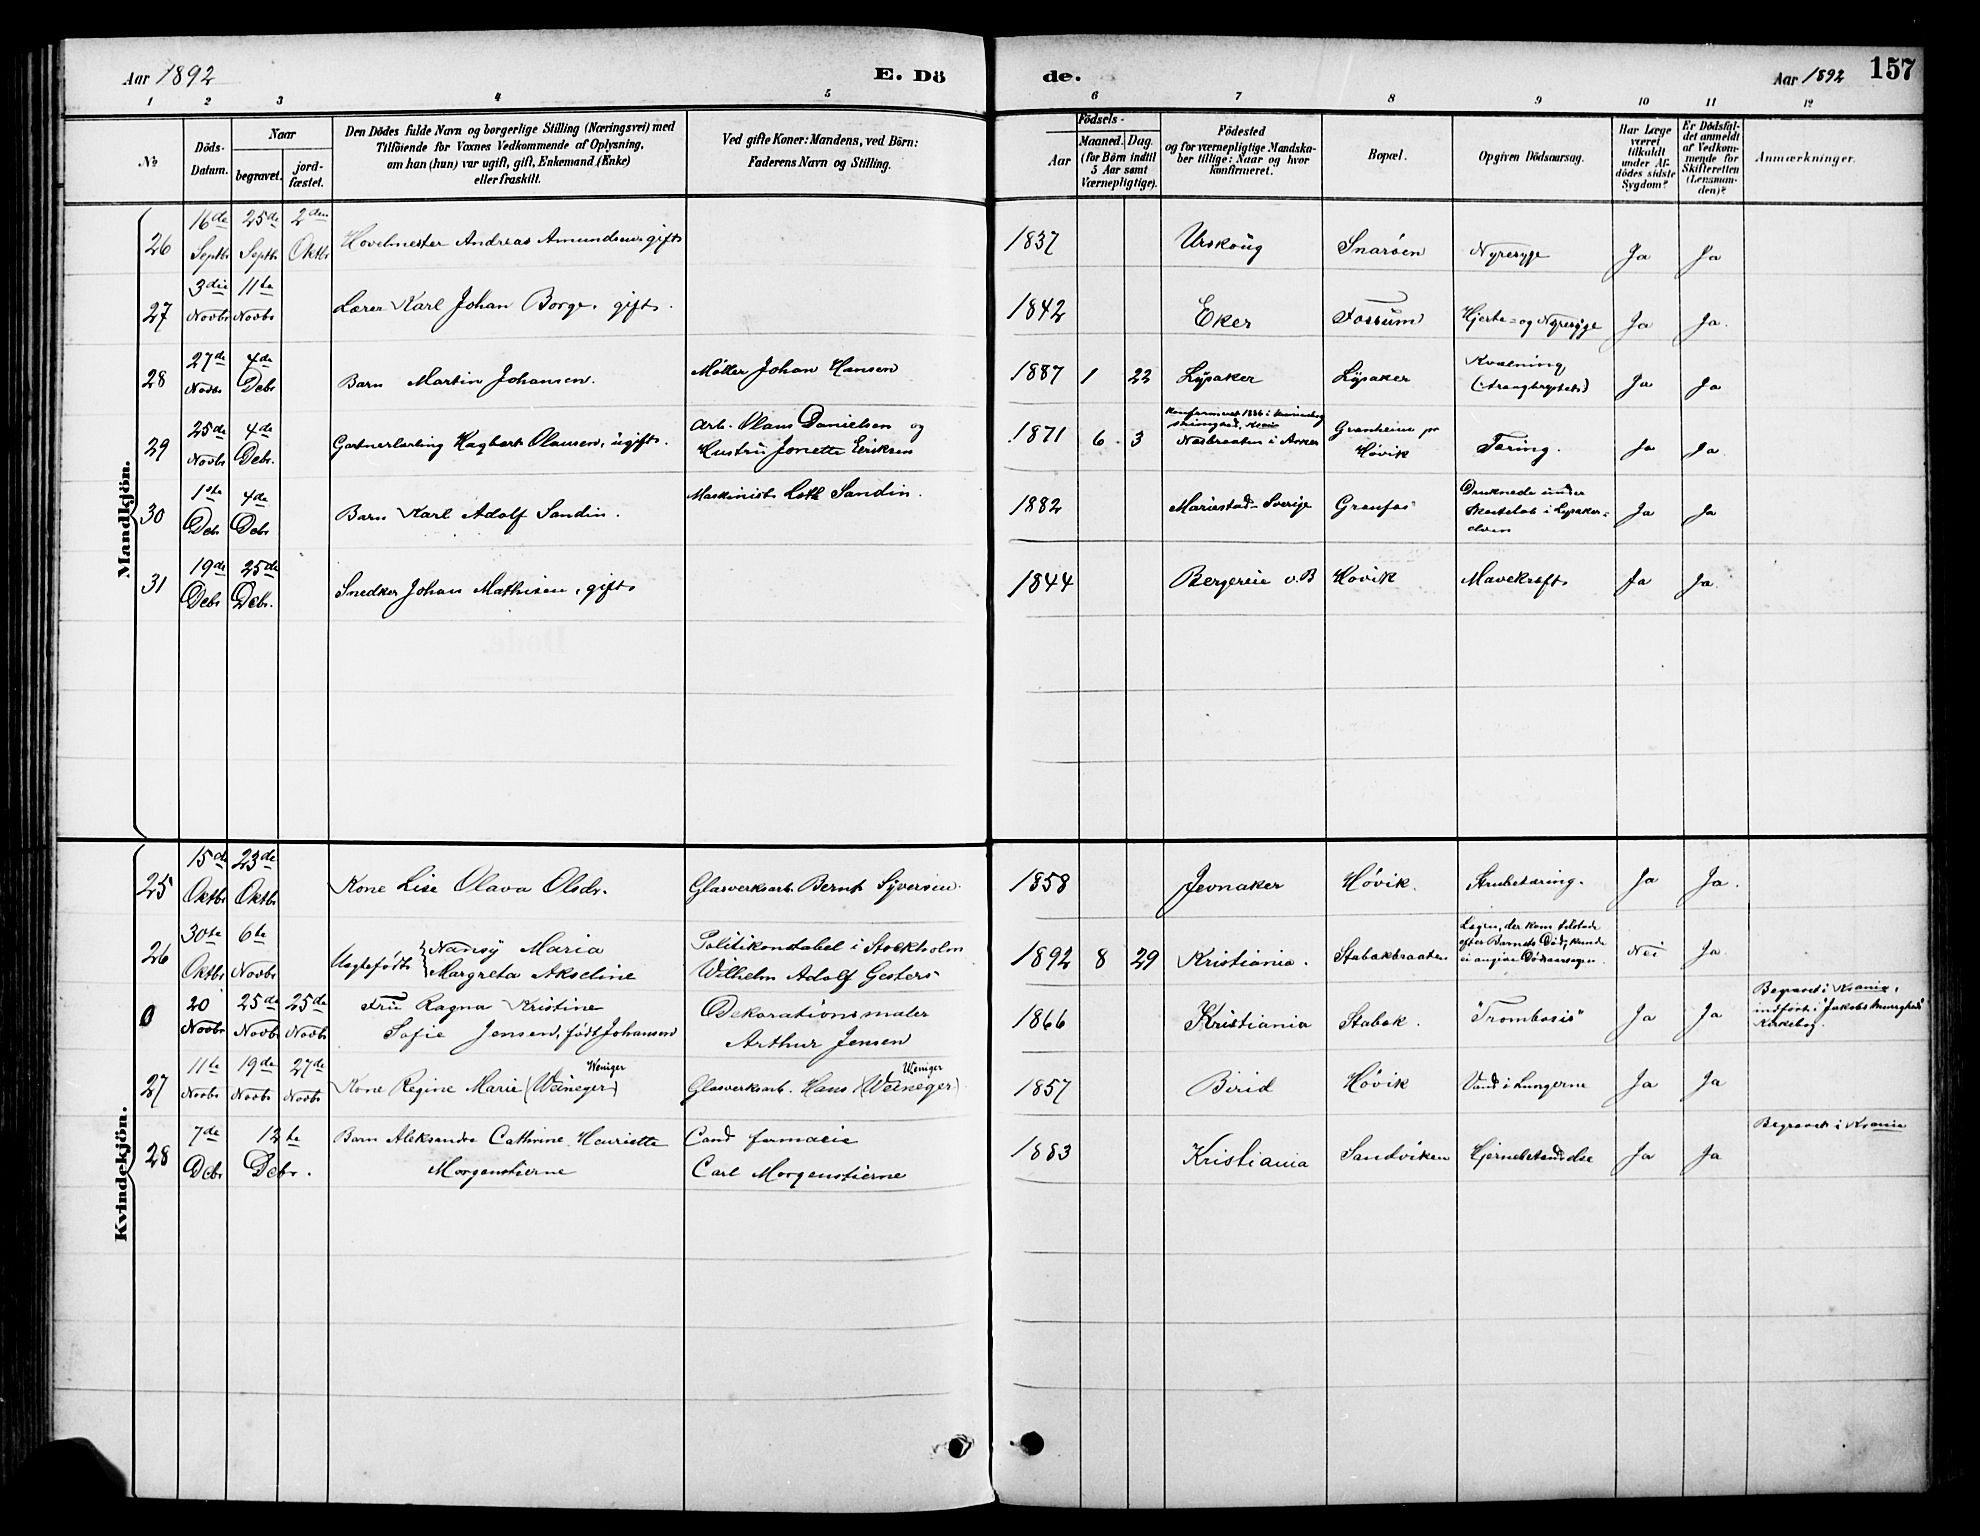 Aar 1892
E. Dö
de.
Aar 1892
157
1 2 3 4 5 6 7 8 9 10 11 12
No
Döds-
Datum.
Naar
begravet.
jord-
fæstet.
Den Dödes fulde Navn og borgerlige Stilling (Næringsvei) med
Tilföiende for Voxnes Vedkommende af Oplysning,
om han (hun) var ugift, gift, Enkemand (Enke)
eller fraskilt.
Ved gifte Koner: Mandens, ved Börn:
Faderens Navn og Stilling.
Födsels-
Aar
Maaned. Dag.
(for Børn indtil
5 Aar samt
Værnepligtige).
Födested
og for værnepligtige Mandska-
ber tillige: Naar og hvor
konfirmeret.
Bopæl.
Opgiven Dödsaarsag.
Har Læge
været
tilkaldt
under Af-
dödes sidste
Sygdom?
Er Dödsfal-
det anmeldt
af Vedkom-
mende for
Skifteretten
(Lensman-
den)?
Anmærkninger.
Mandkjön.
26 16de Septbr 25de Septbr 2den Oktbr Hovelmester Andreas Amundsen, gift 1837 Urskoug Snarøen Nyresyge Ja Ja
27 3die Novbr 11te Novbr Lærer Karl Johan Borge, gift. 1842 Eker Fossum Hjerte- og Nyresyge Ja Ja.
28 27de Novbr 4de Debr Barn Martin Johansen. Møller Johan Hansen 1887 1 22 Lysaker Lysaker Kvælning Ja Ja
29 25de Novbr 4de Debr. Gartnerlærling Hagbart Olausen, ugift. Arb. Olaus Danielsen og
Hustru Jonette Eriksen 1871 6 3 Konfirmeret 1886 i
Næsbraaten i Aker Granheim pr
Høvik Tæring. Ja Ja
30 1ste Debr 4de Debr Barn Karl Adolf Sandin. Maskinist Loth Sandin. 1882 Mariestad - Sverige Granfos Druknede under
Skøiteløb i Lysaker-
elven Ja Ja
31 19de Debr 25de Debr. Snedker Johan Mathisen, gift 1844 Bergereie v. B Høvik Mavekræft Ja Ja.
Kvindekjön.
25 15de Oktbr 23de Oktbr Kone Lise Olava Olsdr. Glasverksarb. Bernt Syversen. 1858 Jevnaker Høvik. Strubetæring. Ja Ja.
26 30te Oktbr 6te Novbr Uægtefødt Nansy Maria
Margreta Akseline Politikonstabel i Stockholm
Wilhelm Adolf Gesters 1892 8 29 Kristiania. Stabækbraaten Lægen, der kom tilstede
efter Barnets Død, kunde
ei angive Dødsaarsagen. Nei Ja.
0 20 Novbr 25de Novbr 25de Novbr Fru Ragna Kristine
Sofie Jensen, født Johansen Dekorationsmaler
Arthur Jensen 1866 Kristiania Stabæk. "Trombosis" Ja Ja Begravet i Krania,
indført i Jakobs Menigheds
Kirkebog.
27 11te Novbr 19de Novbr 27de Novbr Kone Regine Marie (Weineger) Weniger Glasverksarb. Hans (Weineger) Weniger 1857 Birid Høvik Vand i Lungerne Ja Ja
28 7de Debr 12te Debr. Barn Aleksandra Cathrine Henriette
Morgenstierne Cand farmacie
Carl Morgenstierne 1883 Kristiania Sandviken Hjernebetændelse Ja Ja Begravet i Krania